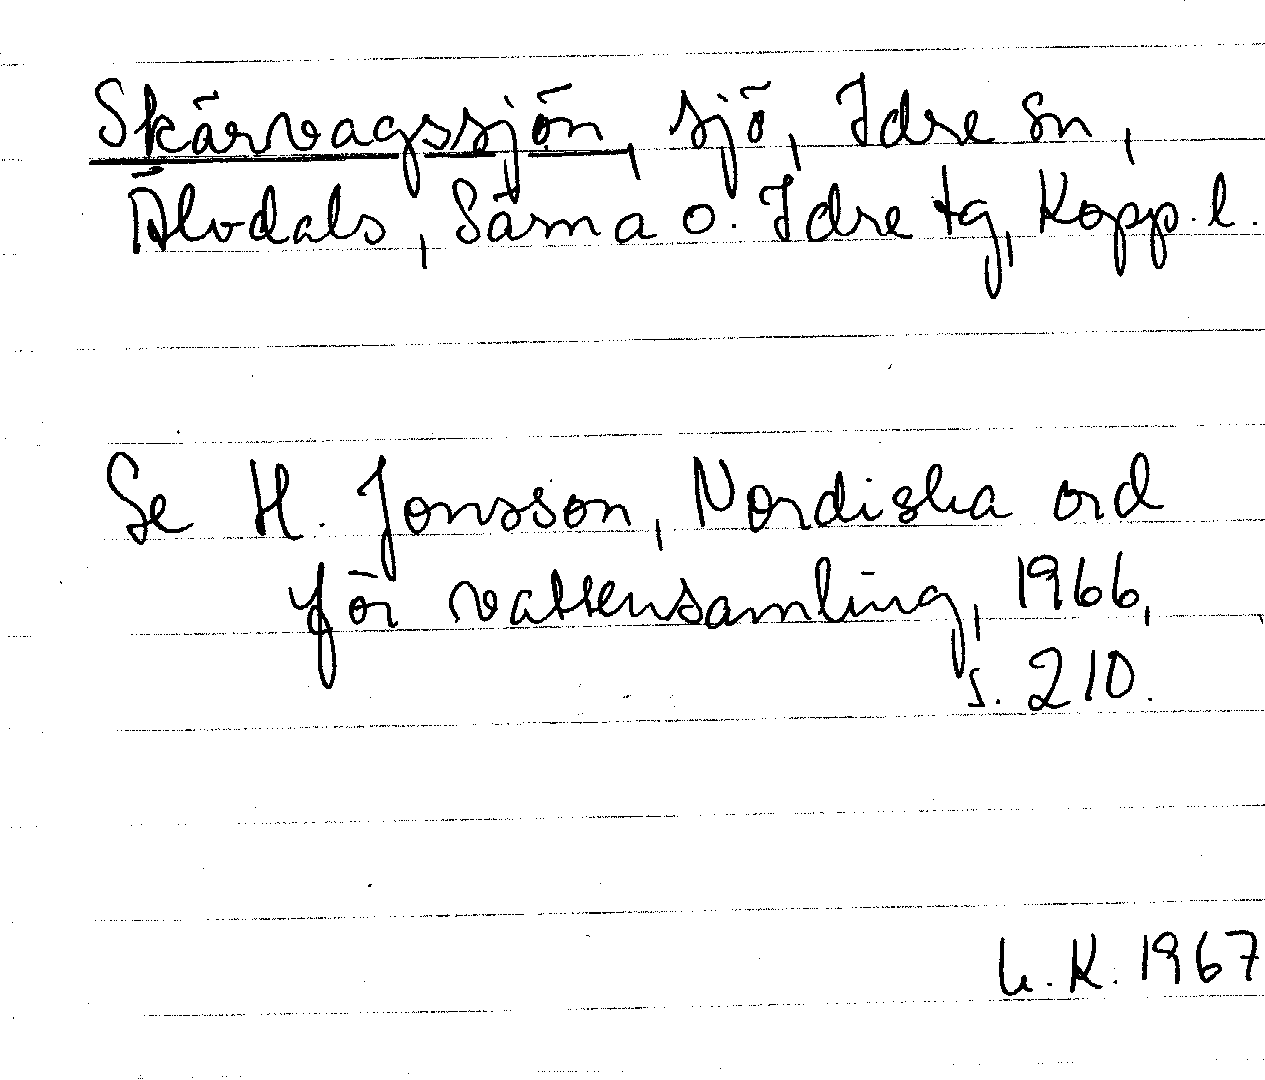 Skärvagssjön, sjö, Idre sn,
Älvdals, Särna o. Idre tg, Kopp. l.
Se H. Jonsson, Nordiska ord
för vattensamling, 1966,
s. 210.
L. K. 1967